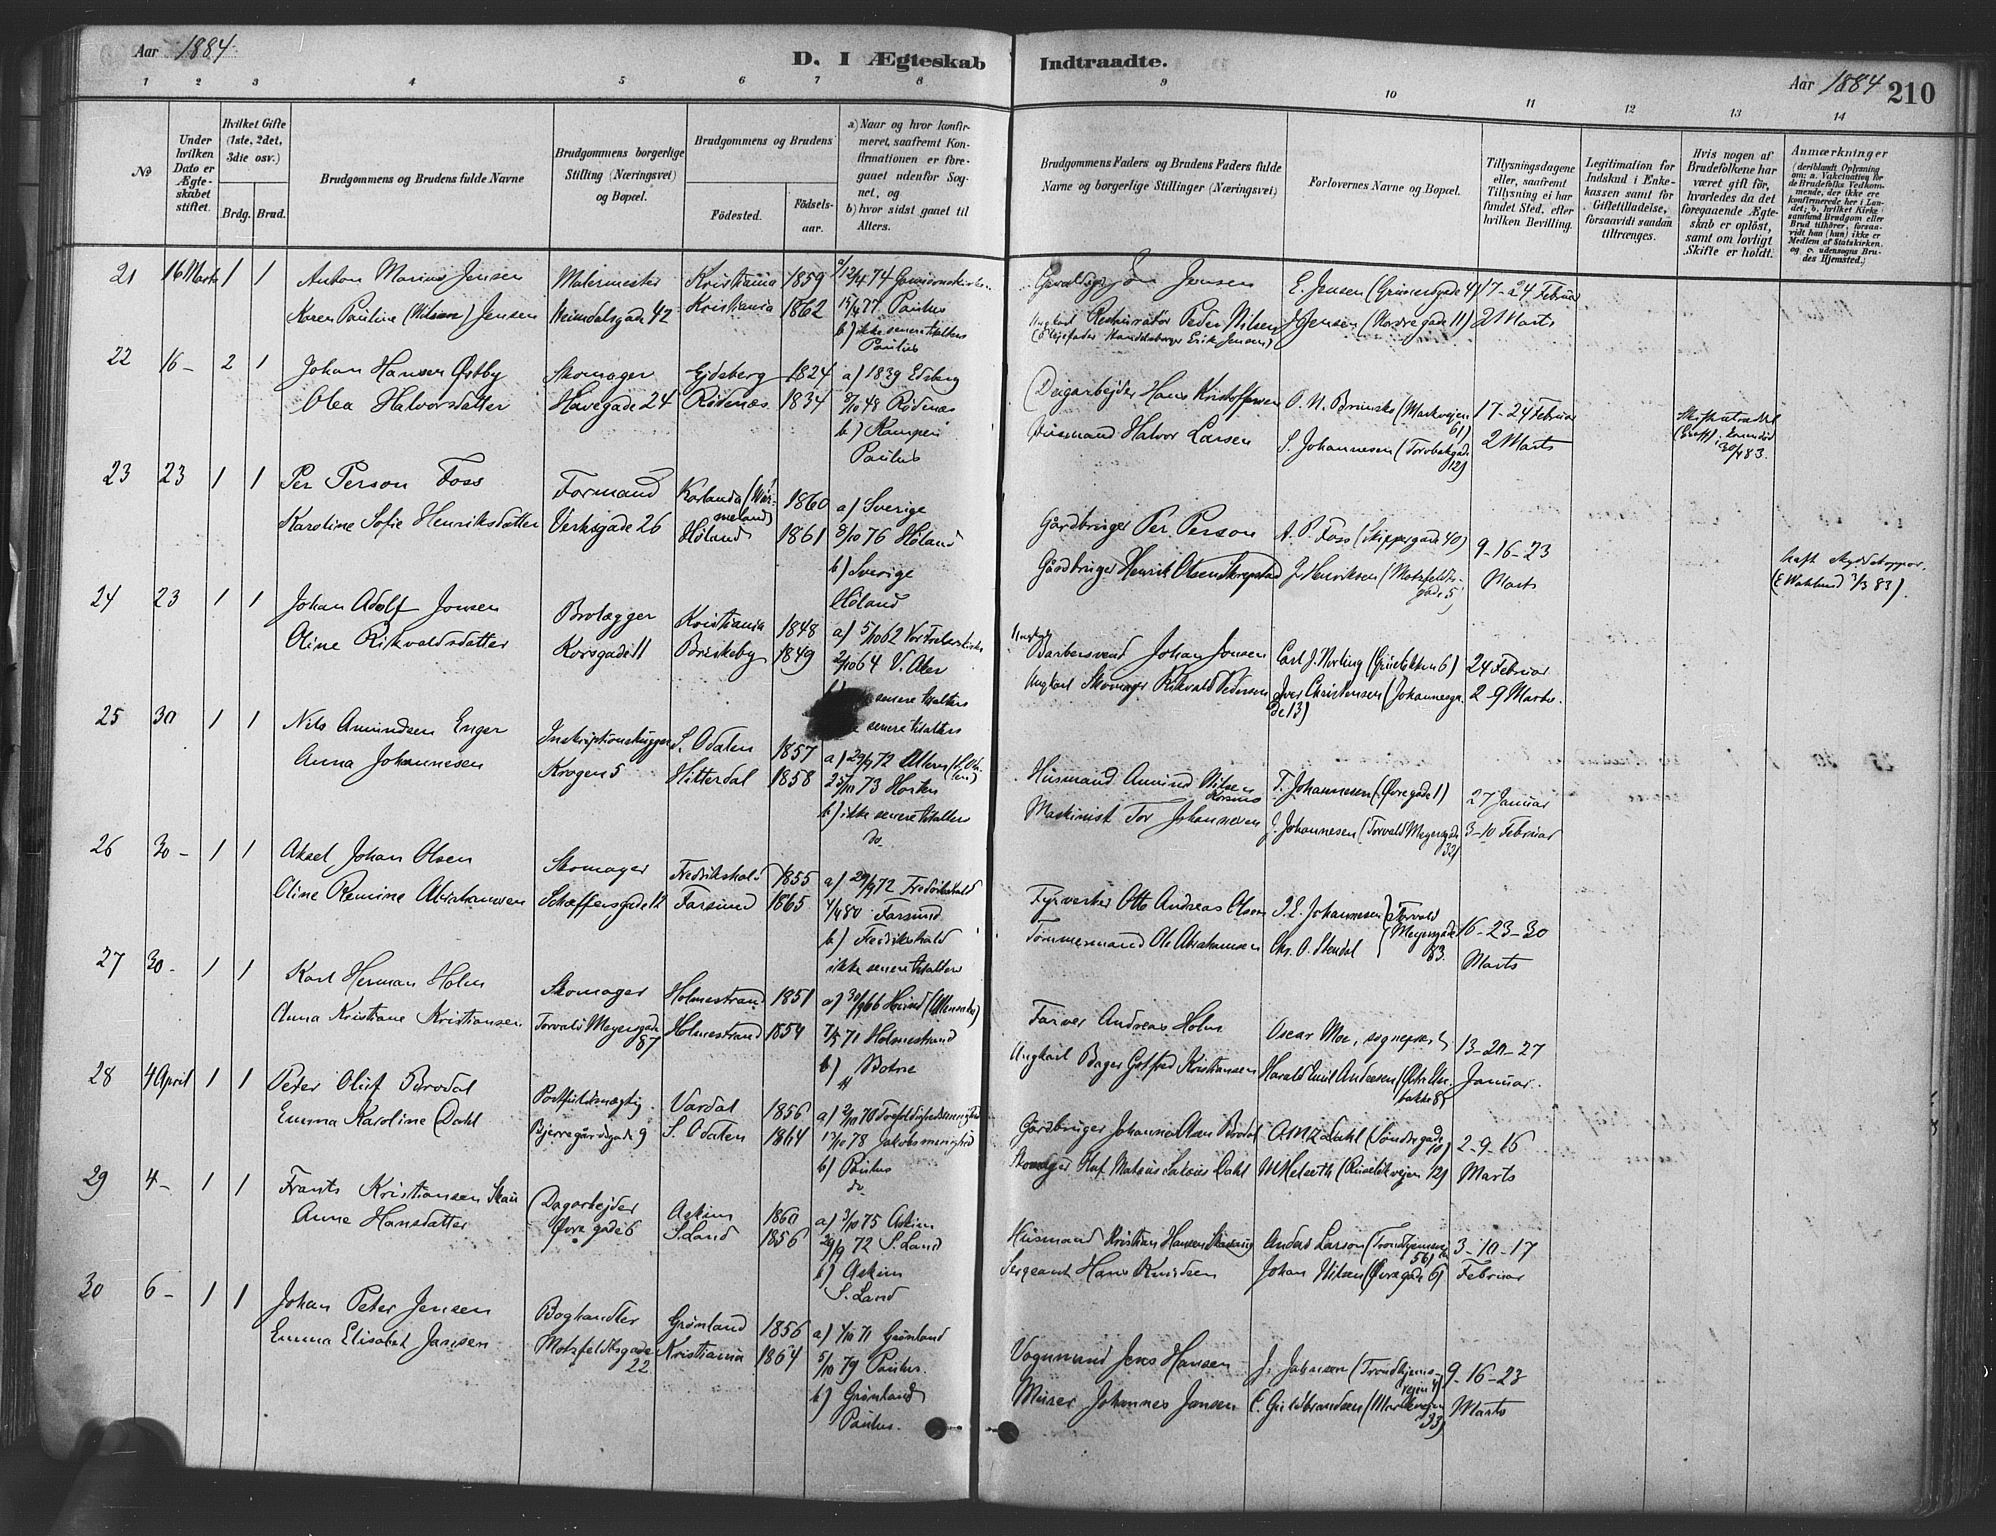 Aar 1884
D. I Ægteskab Indtraadte.
Aar 1884 210
1 2 3 4 5 6 7 8 9 10 11 12 13 14
No
Under hvilken Dato er Ægteskabet stiftet.
Hvilket Gifte (1ste, 2det, 3die osv.)
Brdg. Brud.
Brudgommens og Brudens fulde Navne
Brudgommens borgerlige Stilling (Næringsvei) og Bopæl.
Brudgommens og Brudens
Fødested.
Fødselsaar.
a) Naar og hvor konfirmeret, saafremt Konfirmationen er foregaaet udenfor Sognet, og
b) hvor sidst gaaet til Alters.
Brudgommens Faders og Brudens Faders fulde Navne og borgerlige Stillinger (Næringsvei)
Forlovernes Navne og Bopæl.
Tillysningsdagene eller, saafremt Tillysning ei har fundet Sted, efter hvilken Bevilling.
Legitimation for Indskud i Enkekassen samt for Giftetilladelse, forsaavidt saadan tiltrænges.
Hvis nogen af Brudefolkene har været gift før, hvorledes da det foregaaende Ægteskab er opløst, samt om lovligt Skifte er holdt.
Anmærkninger (deriblandt Oplysning om: a. Vakcination for de Brudefolks Vedkommende, der ikke ere konfirmerede her i Landet; b. hvilket Kirkesamfund Brudgom eller Brud tilhører, forsaavidt han (hun) ikke er Medlem af Statskirken, og c. udensogns Brudes Hjemsted.)
21 16 Marts 1 1 Anton Marius Jensen Malermester Kristiania 1859 a) 12/4 74 Jensen E. Jensen 17-24 Februar
Karen Pauline (Nilsen) Jensen Heimdalsgade 42 Kristiania 1862 15/4 77 Paulus Ungkarl Peder Nilsen J. Jensen (Nordregade 11) 2 Marts
b) ikke senere tilalters (Plejefader Handelsborger Erik Jensen)
Paulus
22 16 - 2 1 Johan Hansen Østby Skomager Ejdsberg 1824 a) 1839 Edsberg Dagarbejder Hans Kristoffersen O. N. (Markvejen 61) 17-24 Februar
Olea Halvorsdatter Havegade 24 Rødenæs 1834 8/10 48 Rødenæs Husmand Halvor Larsen S. Johannesen (Torvbakgade 12) 2 Marts 30/4 83.
b) Kampen
Paulus
23 23 1 1 Per Person Foss Formand Karlanda (Wermeland) 1860 a) Sverige Gårdbruger Per Person A. P. Foss (Skippergade 40) 9-16-23
Karoline Sofie Henriksdatter Verksgade 26 Høland 1861 8/10 76 Høland Gårdbruger Henrik Olsen J. Henriksen (Motzfeldtsgade 5) Marts
b) Sverige
Høland
24 23 1 1 Johan Adolf Jonsen Brolægger Kristiania 1848 a) 5/10 62 Vor Frelserskirke Ungkarl Barbersvend Johan Jonsen Carl J. Norling (Grünerløkken 6) 24 Februar
Oline Rikvaldsdatter Korsgade 11 Briskeby 1849 2/10 64 V. Aker Ungkarl Skomager Rikvald Pedersen Iver Christensen (Johannesgade 13) 2-9 Marts
senere tilalters
senere tilalters
25 30 1 1 Nils Amundsen Enger S. Odalen 1857 a) 29/9 72 Husmand Amund Nilsen T. Johannesen (Øvregade 1) 27 Januar
Anna Johannesen Krogen 5 Hitterdal 1858 25/10 73 Horten Maskinist Tor Johannesen J. Johannesen (Torvald Meyersgade 32) 3-10 Februar
b) ikke senere tilalters
do.
26 30 - 1 1 Aksel Johan Olsen Skomager Fredrikshald 1855 a) 29/9 72 Fredrikshald Fyrverker Otto Andreas Olsen P. E. Johannesen (Torvald Meyersgade 83. 16-23-30
Oline Remine Abrahamsen Schæffersgade 12 Farsund 1865 4/4 80 Farsund Tømmermand Ole Abrahamsen Chr. O. Stendal Marts
b) Fredrikshald
ikke senere tilalters
27 30 - 1 1 Karl Herman Holm Skomager Holmestrand 1851 a) 30/9 66 Farver Andreas Holm Oscar Moe, 13-20-27
Anna Kristiane Kristiansen Torvald Meyersgade 87 Holmestrand 1854 7/5 71 Holmestrand Ungkarl Bager Gotfred Kristiansen Harald Emil Andersen Januar.
b) Botne
28 4 April 1 1 Peter Oluf Brodal Postfuldmægtig Vardal 1856 a) 2/10 70 Trefoldighedsmenighed Gårdbruger Johannes Olsen Brodal A M Z Dahl (Søndregade 10) 2-9-16
Emma Karoline Dahl Bjerregårdsgade 9 S. Odalen 1864 17/10 78 Jakobsmenighed Skomager Oluf Mateus Dahl M Helseth Marts
b) Paulus
do
29 4 - 1 1 Frants Kristiansen Skau Dagarbejder Askim 1860 a) 3/10 75 Askim Husmand Kristian Hansen Anders Larsen 3-10-17
Anne Hansdatter Øvregade 6 S. Land 1856 29/9 72 S. Land Sergeant Hans Knudsen Johan Nilsen (Øvregade 6) Februar
b) Askim
S. Land
30 6 - 1 1 Johan Peter Jensen Boghandler Grønland 1856 a) 1/10 71 Grønland Vognmand Jens Hansen J. Johnsen 9-16-23
Emma Elisabet Jansen Motzfeldtsgade 22 Kristiania 1864 5/10 79 Paulus. Murer Johannes Jansen E. Guldbrandsen (Markvejen 33) Marts
b) Grønland
Paulus.